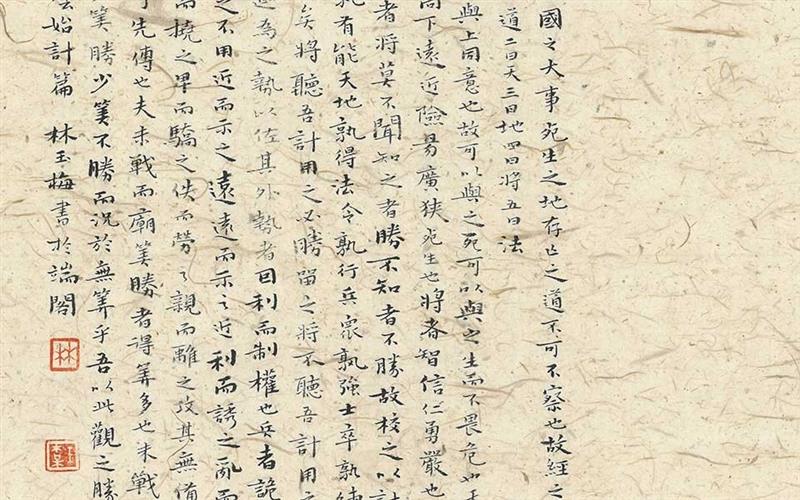 國之大事死生之地存亡之道不可不察也故經之
道二曰天三曰地四曰將五曰法
與上同意也故可以與之死可以與之生而不畏危也
高下遠近險易廣狹死生也將者智信仁勇嚴也
者將莫不聞知之者勝不知者不勝故校之以計
孰有能天地孰得法令孰行兵衆孰強士卒孰練
矣將聽吾計用之必勝留之將不聽吾計用之
為之勢以佐其外勢者因利而制權也兵者詭
之不用近而示之遠遠而示之近利而誘之亂而
而撓之卑而驕之佚而勞之親而離之攻其無備
可先傳也夫未戰而廟筭勝者得筭多也未戰
筭勝少筭不勝而況於無筭乎吾以此觀之勝
始計篇 林玉梅書於端閣
林